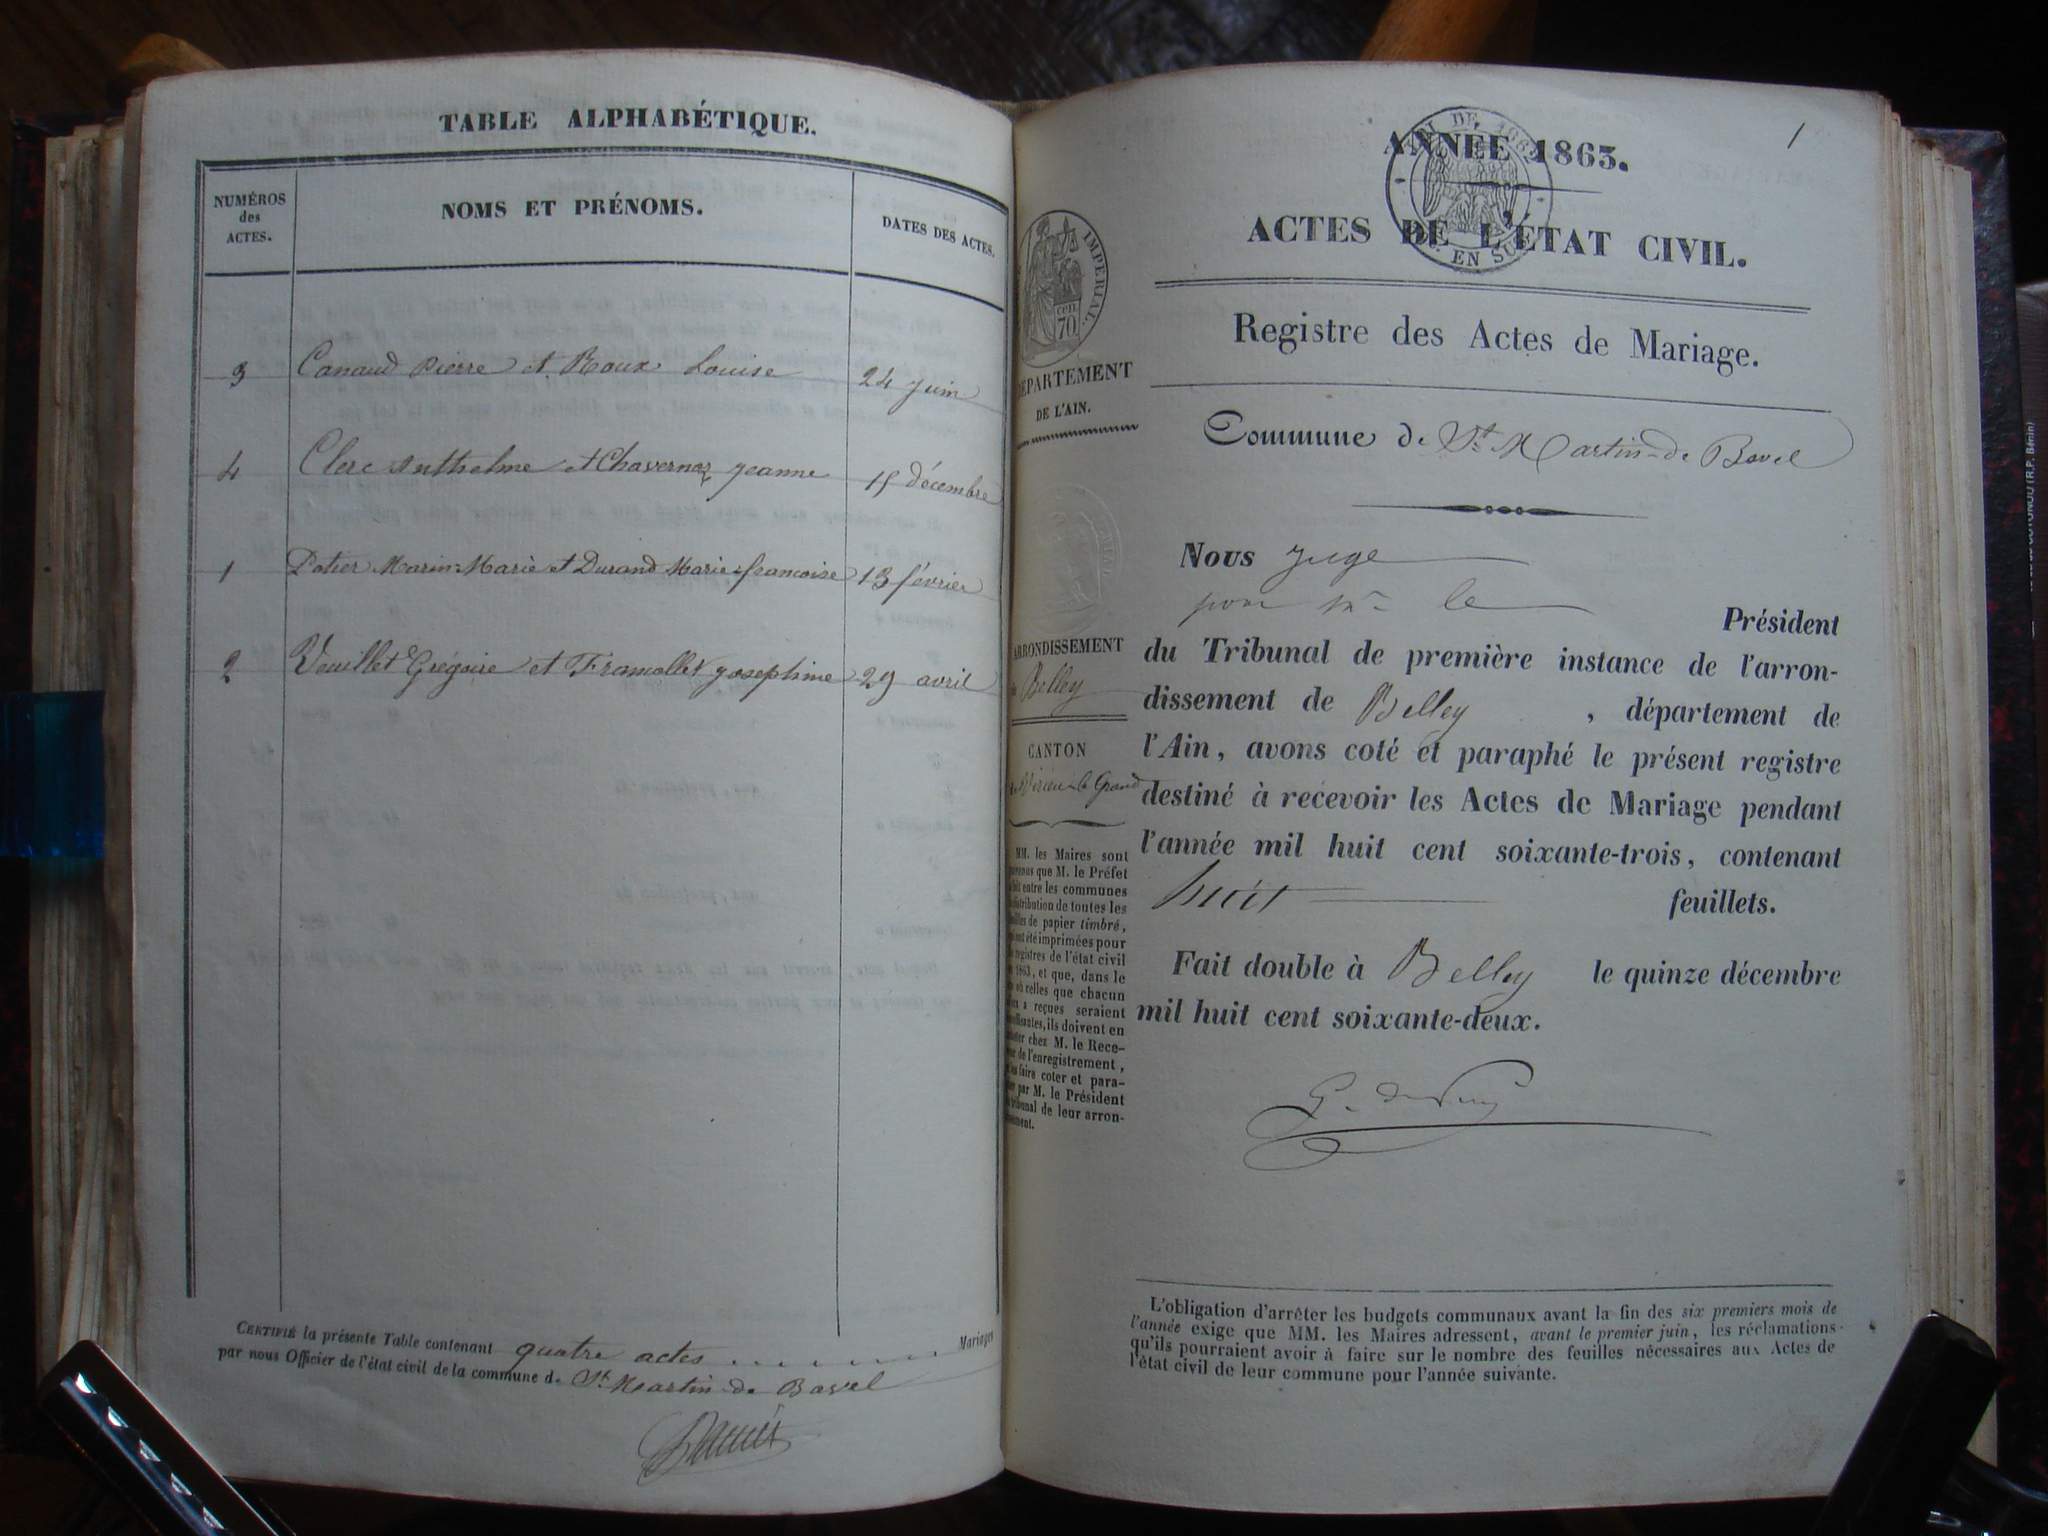 TABLE ALPHABÉTIQUE.
NUMÉROS
des
ACTES.
NOMS ET PRÉNOMS.
DATES DES ACTES.
3 Canaud Pierre et Roux Louise 24 juin
4 Clerc Anthelme et Chavernoz Jeanne 15 décembre
1 Potier Marin-Marie et Durand Marie-francoise 13 février
2 Veuillet Grégoire et Framollet Josephine 29 avril
CERTIFIÉ la présente Table contenant quatre actes Mariages
par nous Officier de l'état civil de la commune de St Martin-de Bavel
1
ANNÉE 1863.
ACTES DE L'ÉTAT CIVIL.
EN SUS
IMPERIAL.
cen
70
Registre des Actes de Mariage.
DÉPARTEMENT
DE L'AIN.
Commune de St Martin-de Bavel
Nous Juge
pour Mr le
Président
du Tribunal de première instance de l'arron-
dissement de Belley, département de
l'Ain, avons coté et paraphé le présent registre
destiné à recevoir les Actes de Mariage pendant
l'année mil huit cent soixante-trois, contenant
huit feuillets.
Fait double à Belley le quinze décembre
mil huit cent soixante-deux.
ARRONDISSEMENT
de Belley
CANTON
de Virieu-le Grand
MM. les Maires sont
que M. le Préfet
fait entre les communes
distribution de toutes les
feuilles de papier timbré,
qui ont été imprimées pour
les registres de l'état civil
de 1863, et que, dans le
cas où celles que chacun
d'eux a reçues seraient
insuffisantes, ils doivent en
acheter chez M. le Rece-
veur de l'enregistrement,
et les faire coter et para-
pher par M. le Président
du tribunal de leur arron-
dissement.
L'obligation d'arrêter les budgets communaux avant la fin des six premiers mois de
l'année exige que MM. les Maires adressent, avant le premier juin, les réclamations
qu'ils pourraient avoir à faire sur le nombre des feuilles nécessaires aux Actes de
l'état civil de leur commune pour l'année suivante.